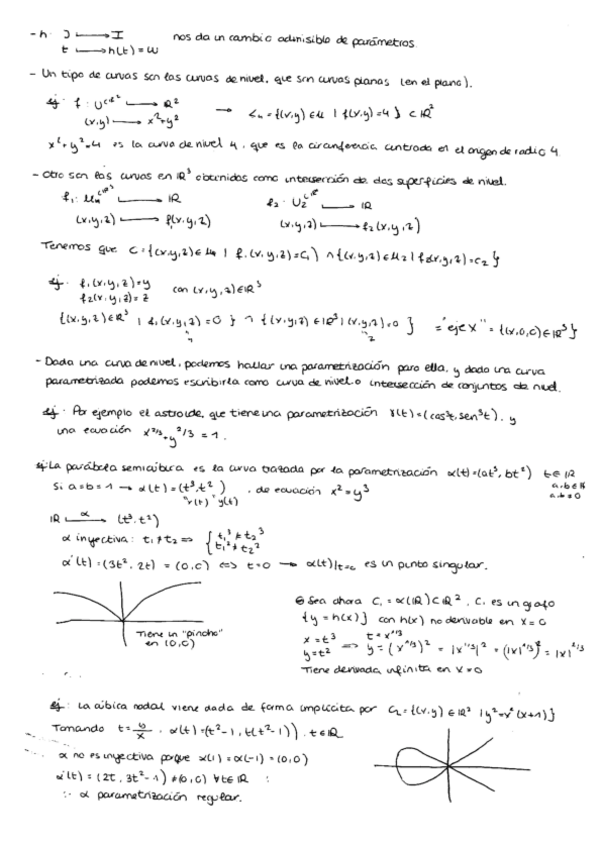 - h: J ⟼ I nos da un cambio admisible de parámetros.
t ⟼ h(t) = u
- Un tipo de curvas son las curvas de nivel, que son curvas planas (en el plano).
ej: f: U⊂ℝ² ⟶ ℝ² → C₄ = {(x,y) ∈ U | f(x,y) = 4} ⊂ ℝ²
(x,y) ⟶ x²+y²
x²+y²=4 es la curva de nivel 4, que es la circunferencia centrada en el origen de radio 4.
- Otro son las curvas en ℝ³ obtenidas como intersección de dos superficies de nivel.
f₁: U₁⊂ℝ³ ⟶ ℝ f₂: U₂⊂ℝ ⟶ ℝ
(x,y,z) ⟼ f₁(x,y,z) (x,y,z) ⟼ f₂(x,y,z)
Tenemos que C = {(x,y,z) ∈ U₁ | f₁(x,y,z)=c₁} ∩ {(x,y,z) ∈ U₂ | f₂(x,y,z)=c₂}
ej: f₁(x,y,z)=y con (x,y,z) ∈ ℝ³
f₂(x,y,z)=z
{(x,y,z) ∈ ℝ³ | f₁(x,y,z)=0} ∩ {(x,y,z) ∈ ℝ³ | (x,y,z)=0} = "eje x" = {(x,0,0) ∈ ℝ³}
y z
- Dada una curva de nivel, podemos hallar una parametrización para ella, y dada una curva
parametrizada podemos escribirla como curva de nivel o intersección de conjuntos de nivel.
ej: Por ejemplo el astroide, que tiene una parametrización γ(t)=(cos³t, sen³t), y
una ecuación x^2/3 + y^2/3 = 1.
ej: La parábola semicúbica es la curva trazada por la parametrización α(t)=(at³, bt²) t∈ℝ
Si a=b=1 → α(t)=(t³, t²), de ecuación x²=y³ a,b∈ℝ
"x(t)" y(t) a,b≠0
ℝ ⟶α (t³, t²)
α inyectiva: t₁≠t₂ ⇒ { t₁³ ≠ t₂³
t₁² ≠ t₂²
α'(t) = (3t², 2t) = (0,0) ⟺ t=0 → α(t)|t=0 es un punto singular.
Tiene un "pincho"
en (0,0)
Sea ahora C₁ = α(ℝ) ⊂ ℝ², C₁ es un grafo
{y = h(x)} con h(x) no derivable en x=0
x = t³ t = x^1/3
y = t² ⇒ y = (x^1/3)² = |x^1/3|² = (|x|^1/3)² = |x|^2/3
Tiene derivada infinita en x=0
ej: La cúbica nodal viene dada de forma implícita por C₂ = {(x,y) ∈ ℝ² | y²=x²(x+1)}
Tomando t = y/x, α(t)=(t²-1, t(t²-1)), t∈ℝ
α no es inyectiva porque α(1)=α(-1)=(0,0)
α'(t) = (2t, 3t²-1) ≠ (0,0) ∀t∈ℝ :
∴ α parametrización regular.